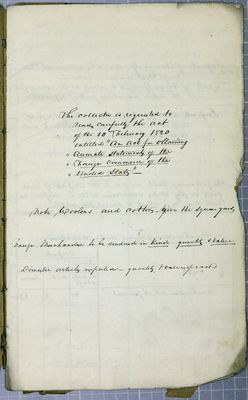 The collector is requested to
read carefully the act
of the 10 February 1820
entitled "An Act for obtaining
" Accurate Statements of the
" Foreign Commerce of the
" United States"
Note Woolens and cottons, give the square yards
Foreign Merchandise to be rendered in kind quantity & value
Domestic articles exported - quantity &